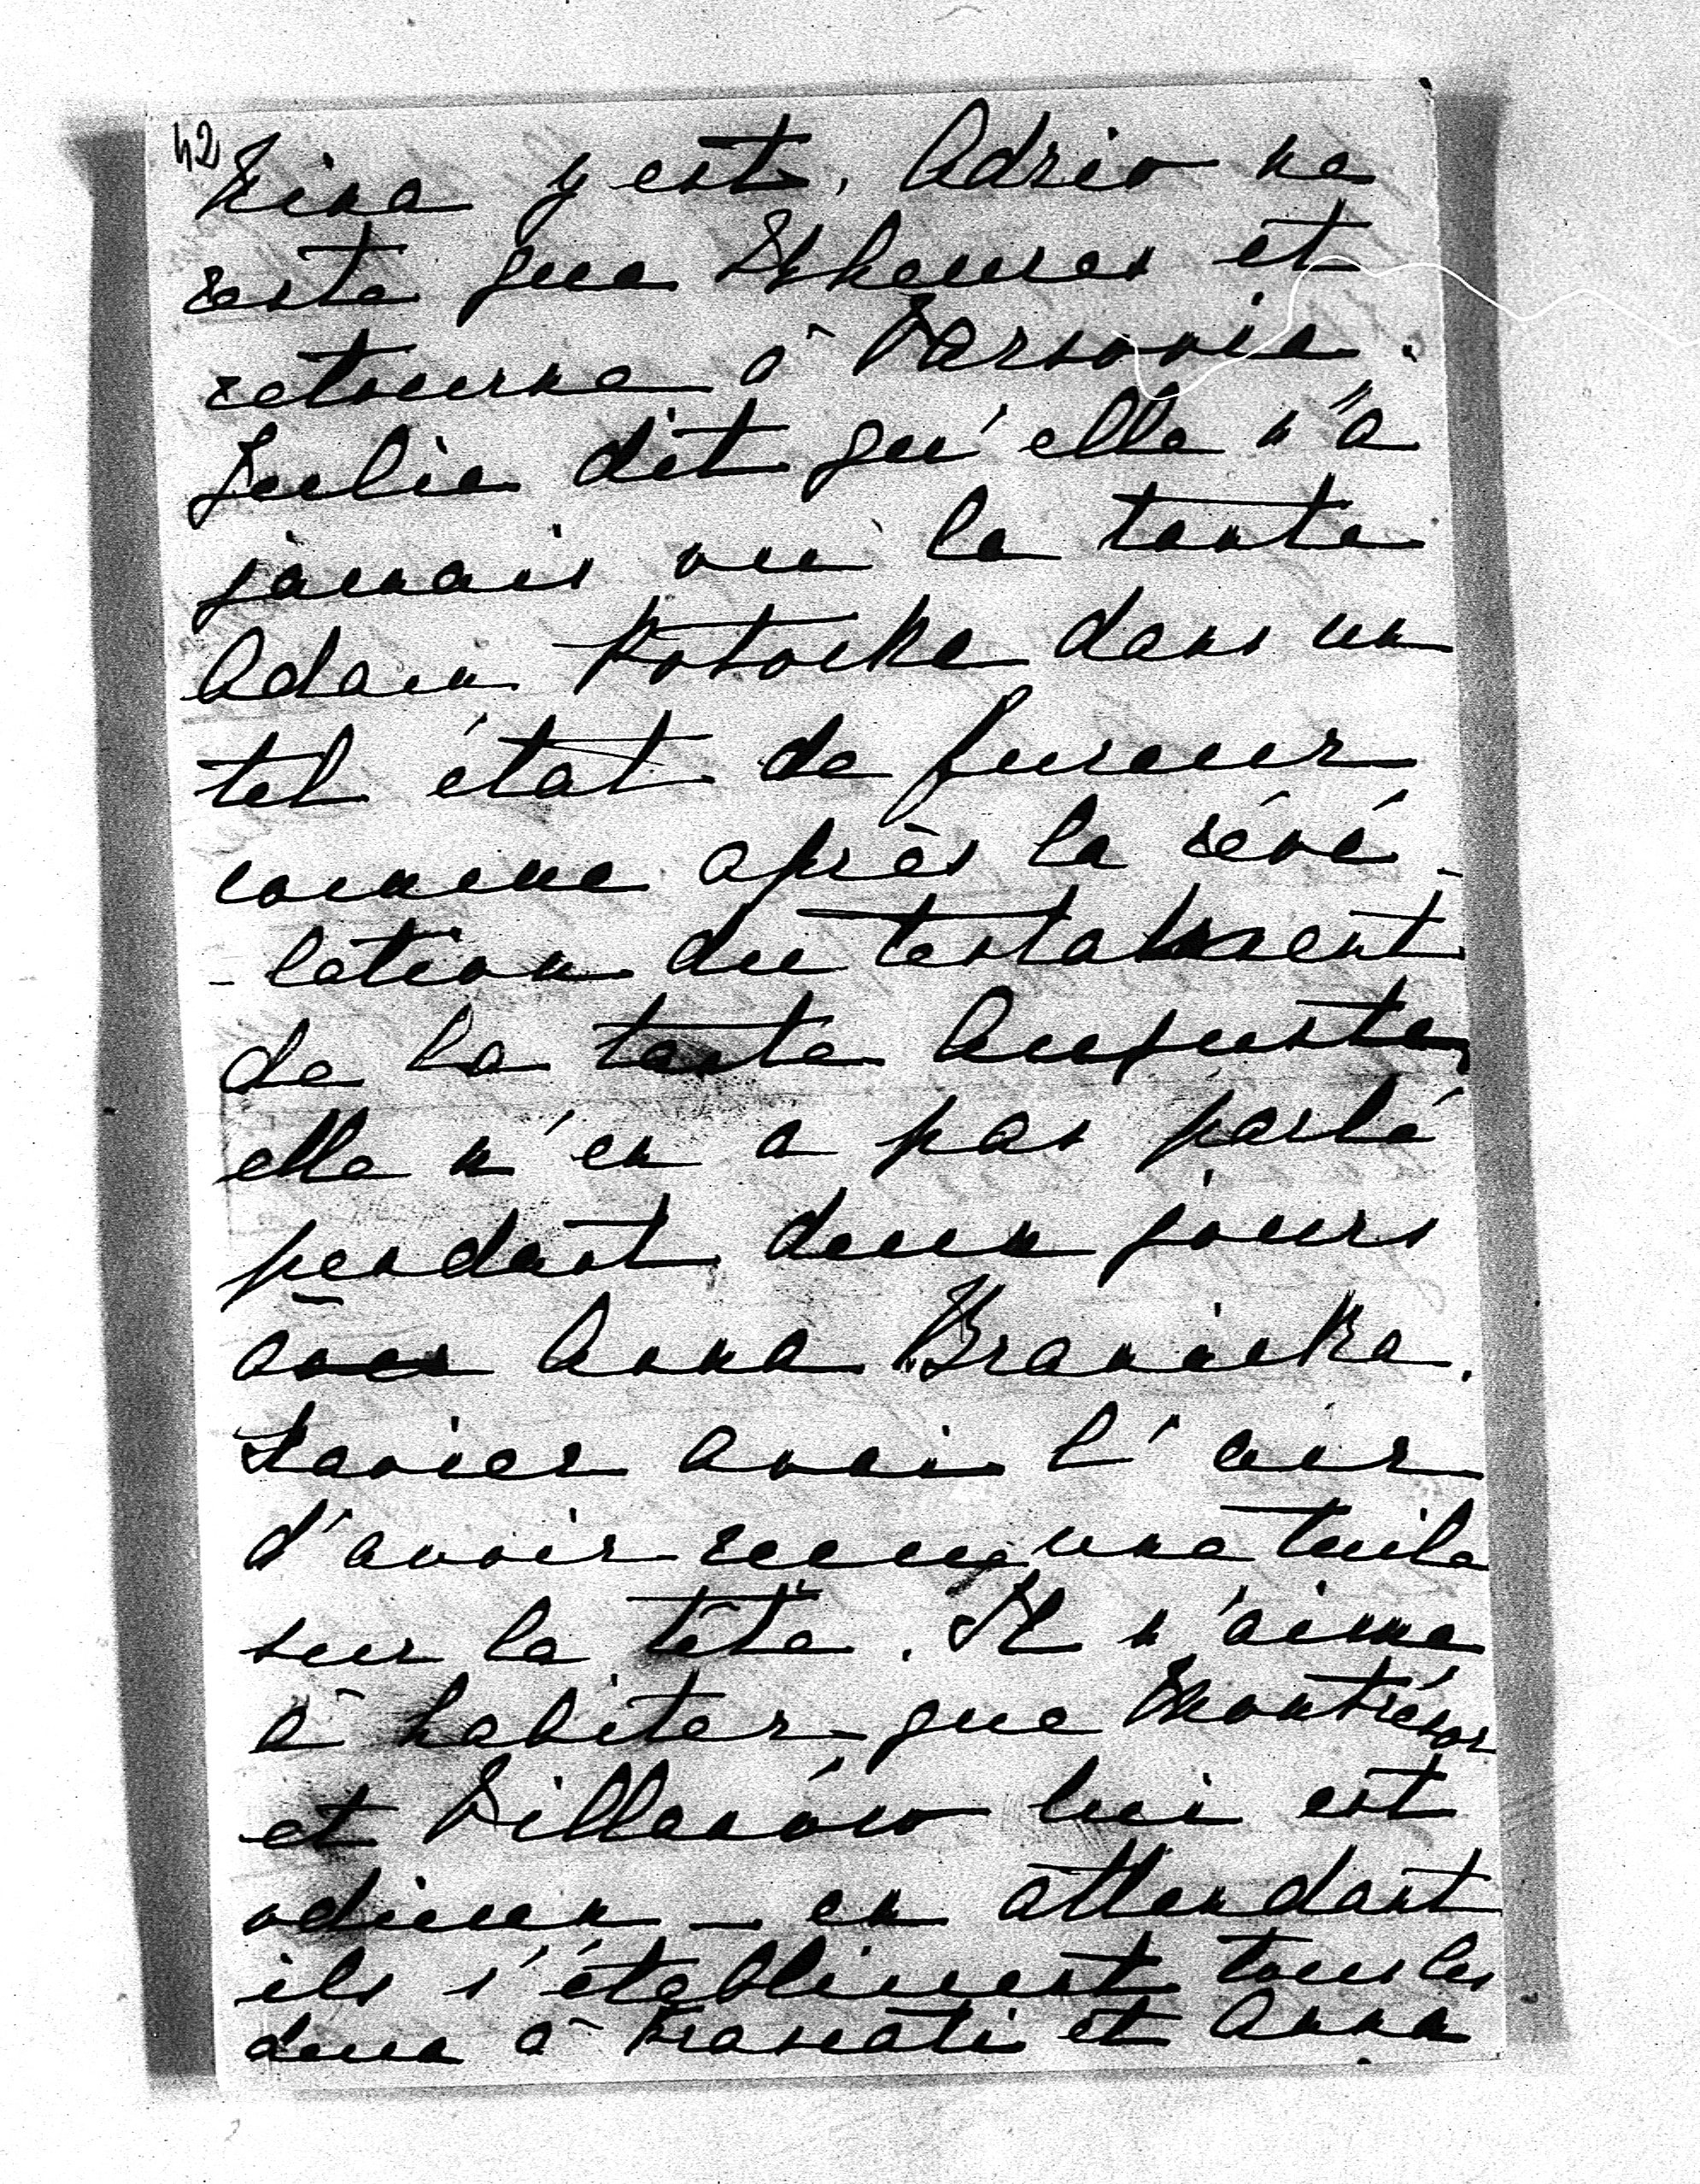 42
Nina y est. Adzio ne
reste que 24 heures et
retourne à Varsovie.
Julie dit qu'elle n'a
jamais vu la tante
Adam Potocka dans un
tel état de fureur
comme après la révé-
-lation du testament
de la tante Auguste,
elle n'en a pas parlé
pendant deux jours
avec Anna Branicka.
Xavier avait l'air
d'avoir reçu une tuile
sur la tête. Il n'aime
à habiter que Montrésor
et Villanów lui est
odieux – en attendant
ils s'établissent tous les
deux à Frascati et Anna